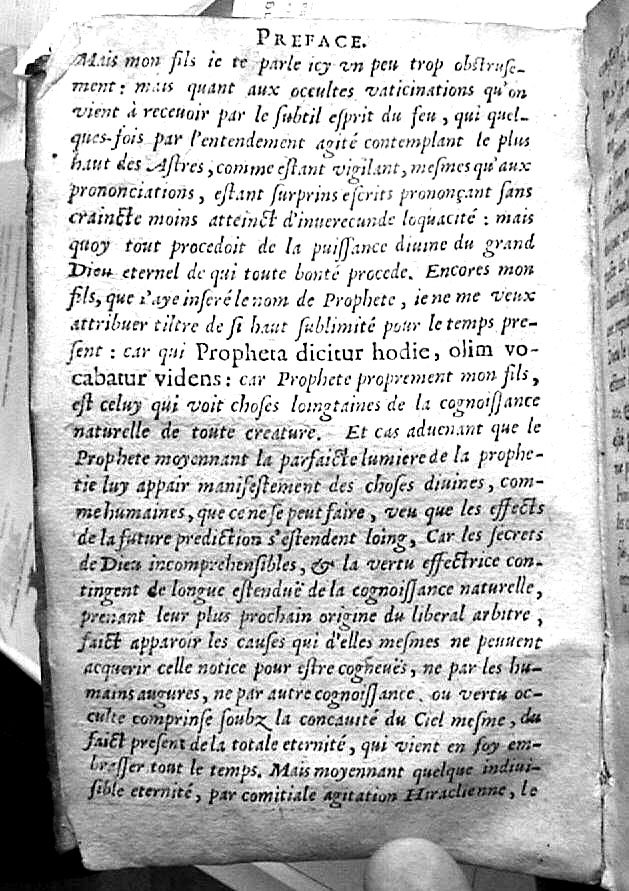 PREFACE.
Mais mon fils ie te parle icy vn peu trop obstruse-
ment: mais quant aux occultes vaticinations qu'on
vient à receuoir par le subtil esprit du feu, qui quel-
ques-fois par l'entendement agité contemplant le plus
haut des Astres, comme estant vigilant, mesmes qu'aux
prononciations, estant surprins escrits prononçant sans
craincte moins atteinct d'inuerecunde loquacité: mais
quoy tout procedoit de la puissance diuine du grand
Dieu eternel de qui toute bonté procede. Encores mon
fils, que i'aye inseré le nom de Prophete, ie ne me veux
attribuer tiltre de si haut sublimité pour le temps pre-
sent: car qui Propheta dicitur hodie, olim vo-
cabatur videns: car Prophete proprement mon fils,
est celuy qui voit choses loingtaines de la cognoissance
naturelle de toute creature. Et cas aduenant que le
Prophete moyennant la parfaicte lumiere de la prophe-
tie luy appair manifestement des choses diuines, com-
me humaines, que ce ne se peut faire, veu que les effects
de la future prediction s'estendent loing, Car les secrets
de Dieu incomprehensibles, & la vertu effectrice con-
tingent de longue estenduë de la cognoissance naturelle,
prenant leur plus prochain origine du liberal arbitre,
faict apparoir les causes qui d'elles mesmes ne peuuent
acquerir celle notice pour estre cogneuës, ne par les hu-
mains augures, ne par autre cognoissance, ou vertu oc-
culte comprinse soubz la concauité du Ciel mesme, du
faict present de la totale eternité, qui vient en soy em-
brasser tout le temps. Mais moyennant quelque indiui-
sible eternité, par comitiale agitation Hiraclienne, le